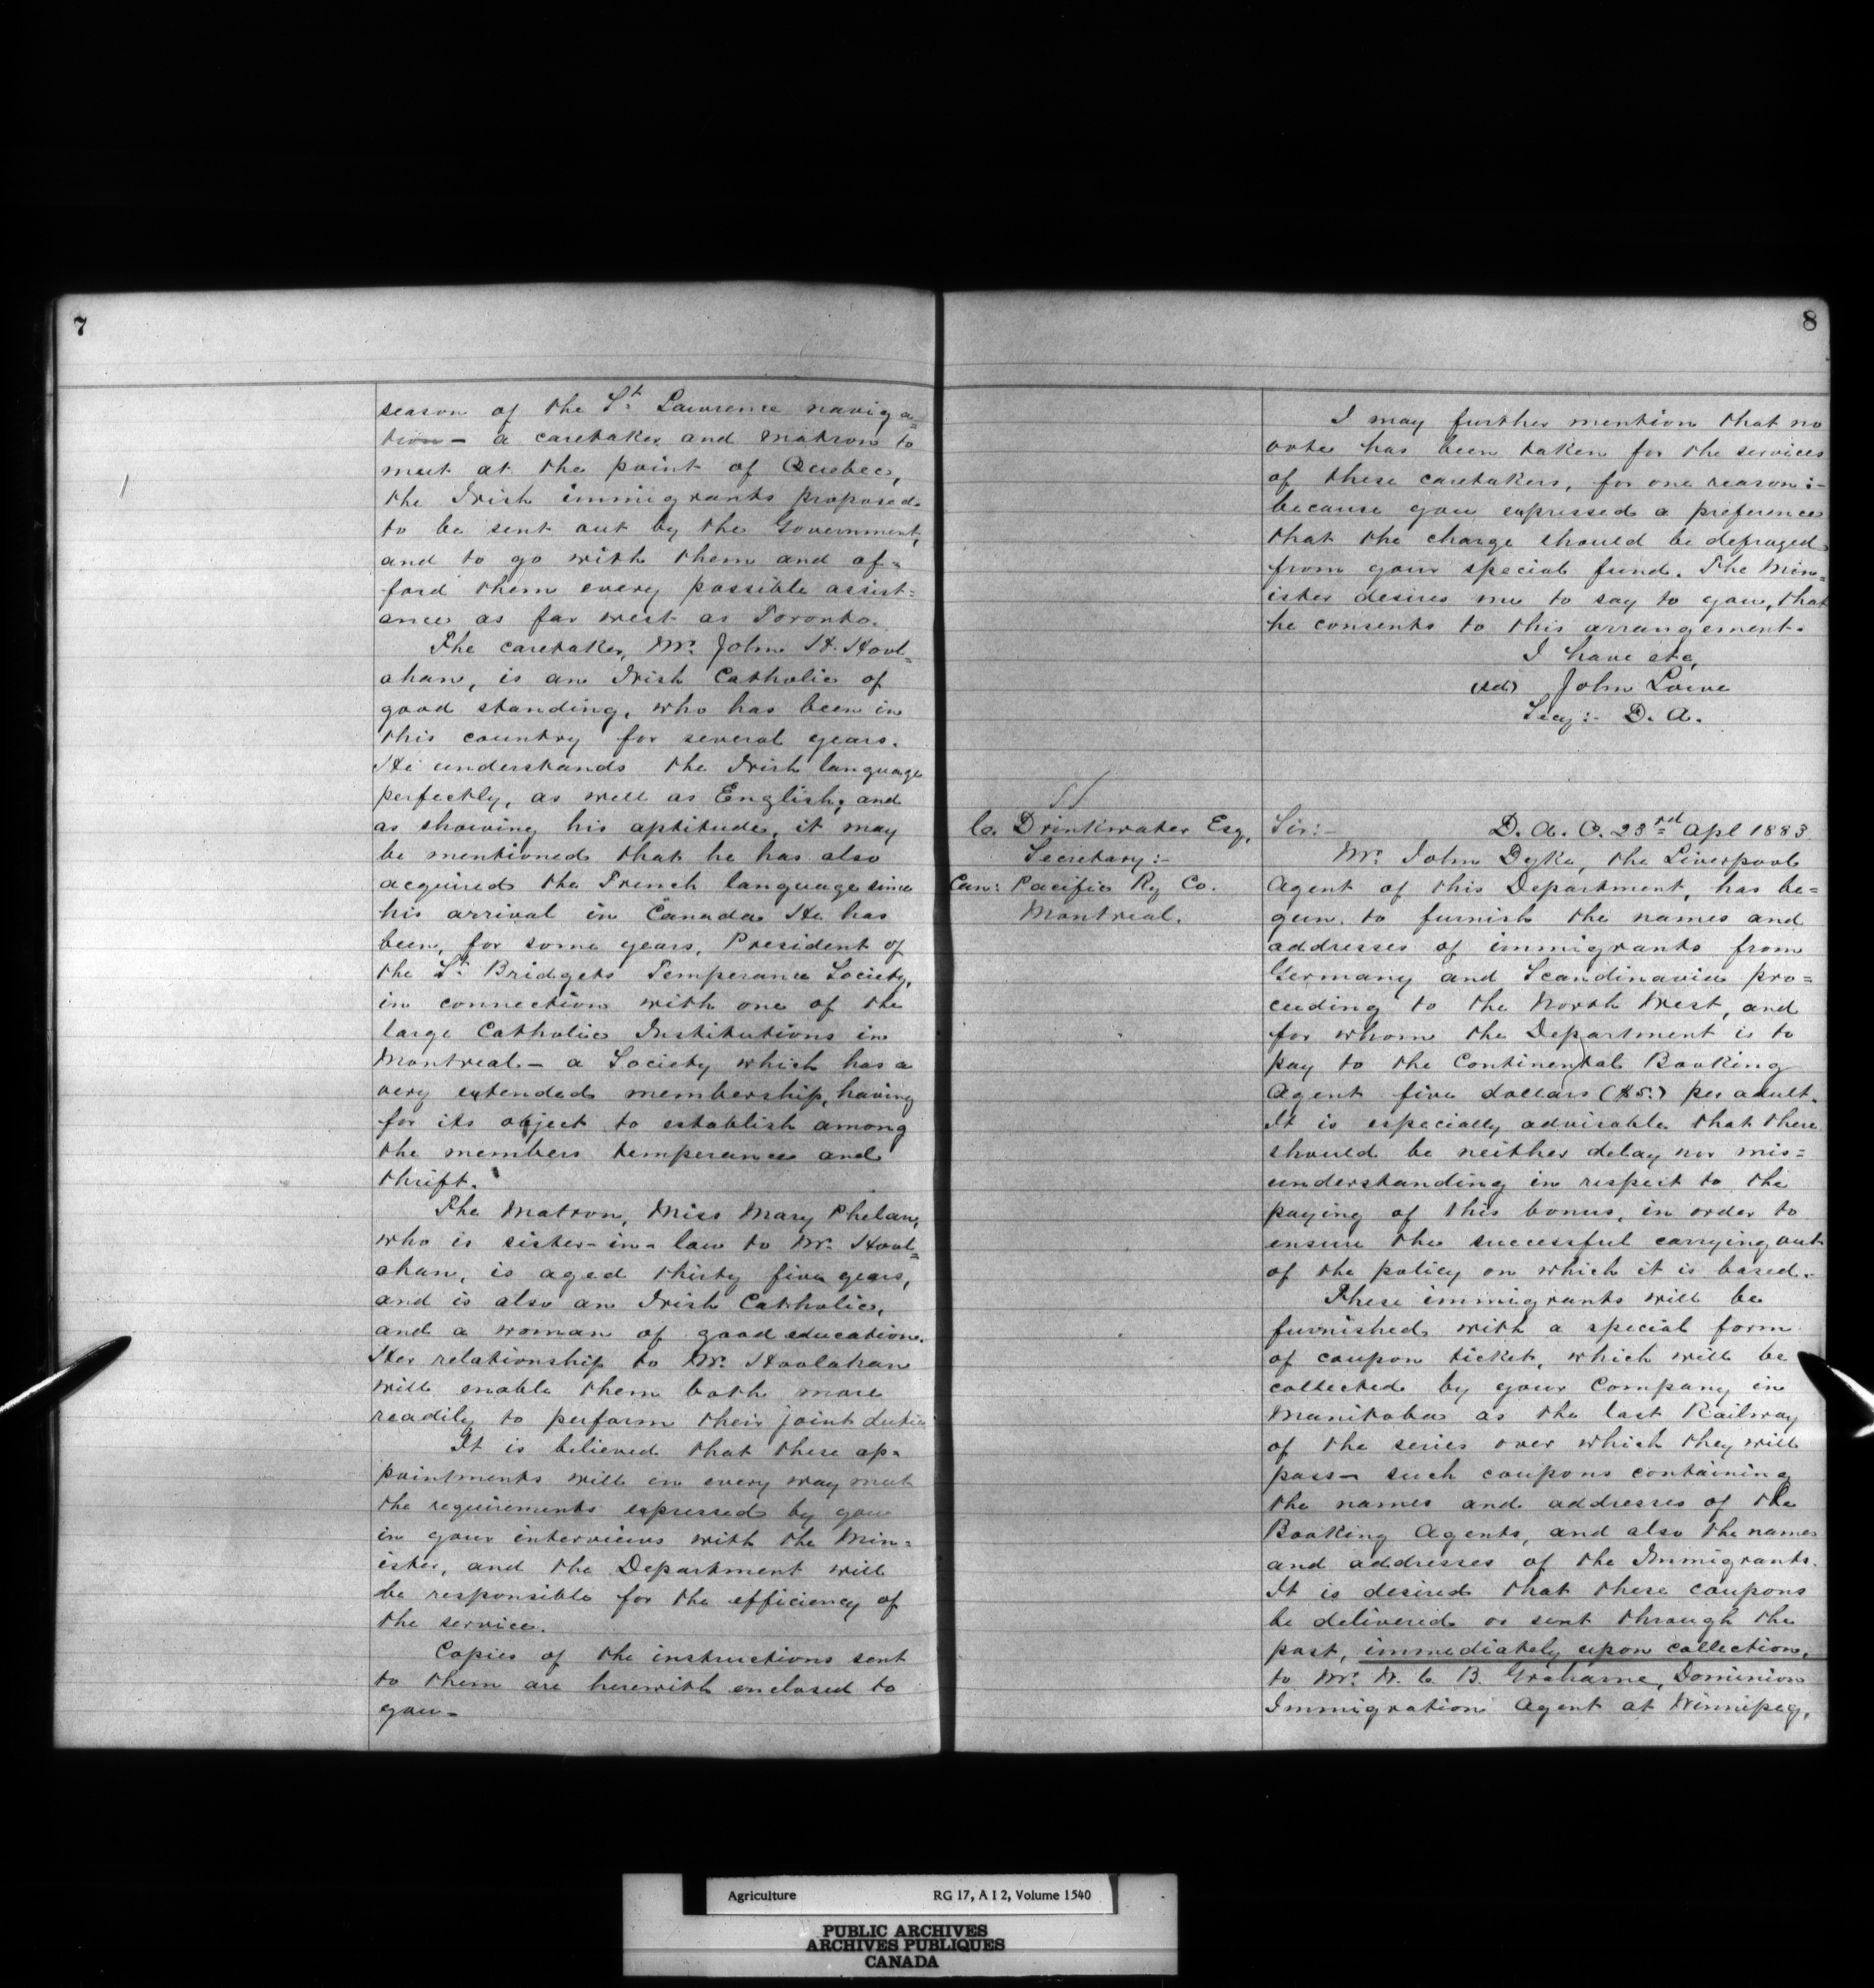 7
season of the St. Lawrence naviga=
tion - a caretaker and matron to
meet at the point of Quebec,
the Irish immigrants proposed
to be sent out by the Government,
and to go with them and af=
ford them every possible assist=
ance as far west as Toronto.
The caretaker, Mr. John H. Hool=
ahan, is an Irish Catholic of
good standing, who has been in
this country for several years.
He understands the Irish language
perfectly, as well as English, and
as showing his aptitude, it may
be mentioned that he has also
acquired the French language since
his arrival in Canada. He has
been, for some years, President of
the St. Bridgets Temperance Society,
in connection with one of the
large Catholic Institutions in
Montreal - a Society which has a
very extended membership, having
for its object to establish among
the members temperance and
thrift.
The Matron, Miss Mary Phelan,
who is sister-in-law to Mr. Hool=
ahan, is aged thirty five years,
and is also an Irish Catholic,
and a woman of good education.
Her relationship to Mr. Hoolahan
will enable them both more
readily to perform their joint duties
It is believed that these ap=
pointments will in every way meet
the requirements expressed by you
in your interviews with the Min=
ister, and the Department will
be responsible for the efficiency of
the service.
Copies of the instructions sent
to them are herewith enclosed to
you -
8
I may further mention that no
vote has been taken for the services
of these caretakers, for one reason :-
because you expressed a preference
that the charge should be defrayed
from your special fund. The Min=
ister desires me to say to you, that
he consents to this arrangement.
I have etc,
(sd) John Lowe
Secy :- D. A.
C. Drinkwater Esq,
Secretary :-
Can: Pacific Ry Co.
Montreal.
Sir :- D. A. O. 23rd Apl 1883
Mr. John Dyke, the Liverpool
Agent of this Department, has be=
gun to furnish the names and
addresses of immigrants from
Germany and Scandinavia pro=
ceeding to the North West, and
for whom the Department is to
pay to the Continental Booking
Agent five dollars ($5.) per adult.
It is especially advisable that there
should be neither delay nor mis=
understanding in respect to the
paying of this bonus, in order to
ensure the successful carrying out
of the policy on which it is based.
These immigrants will be
furnished with a special form
of coupon ticket, which will be
collected by your Company in
Manitoba as the last Railway
of the series over which they will
pass - such coupons containing
the names and addresses of the
Booking Agents, and also the names
and addresses of the Immigrants.
It is desired that these coupons
be delivered or sent through the
post, immediately upon collection,
to Mr. W. C. B. Grahame, Dominion
Immigration Agent at Winnipeg,
Agriculture RG 17, A I 2, Volume 1540
PUBLIC ARCHIVES
ARCHIVES PUBLIQUES
CANADA